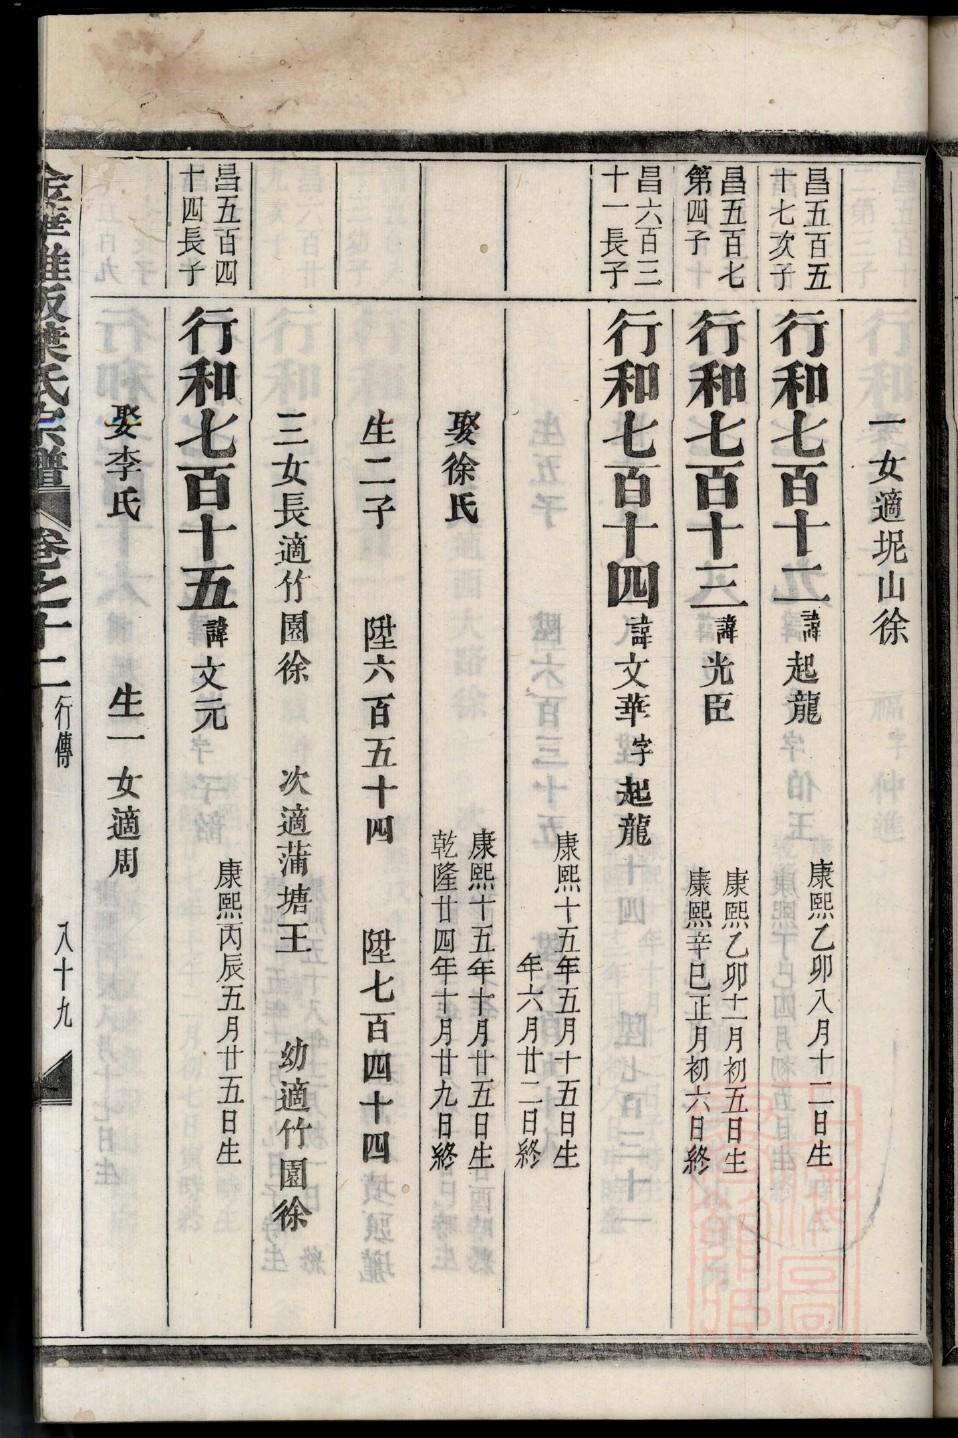 一女適坭山徐
昌五百五
十七次子
行和七百十二諱起龍
康熙乙卯八月十二日生
昌五百七
第四子
行和七百十三諱光臣
康熙乙卯十二月初五日生
康熙辛巳正月初六日終
昌六百三
十一長子
行和七百十四諱文華字起龍
康熙十五年五月十五日生
年六月廿二日終
娶徐氏
康熙十五年十月廿五日生
乾隆廿四年十月廿九日終
生二子 陞六百五十四 陞七百四十四
三女長適竹園徐 次適蒲塘王 幼適竹園徐
昌五百四
十四長子
行和七百十五諱文元
康熙丙辰五月廿五日生
娶李氏 生一女適周
葉氏宗譜 卷之十二 行傳 八十九